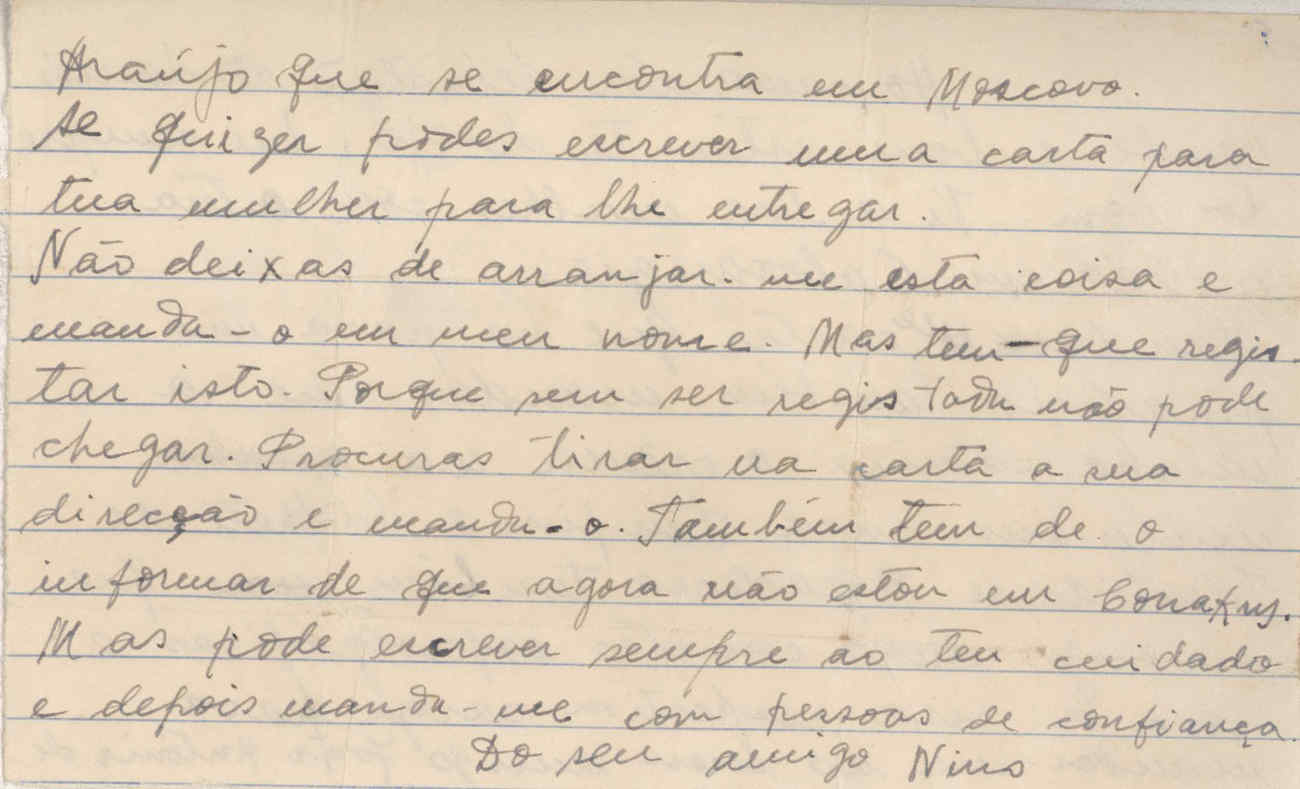 Araújo que se encontra em Moscovo.
se quizer pòdes escrever uma carta para
tua mulher para lhe entregar.
Não deixas de arranjar-me esta coisa e
manda-o em meu nome. Mas tem-que regis-
tar isto. Porque sem ser registada não pode
chegar. Procuras tirar na carta a sua
direcção e manda-o. Também tem de o
informar de que agora não estou em Conakry.
Mas pode escrever sempre ao teu cuidado
e depois manda-me com pessoas de confiança.
Do seu amigo Nino